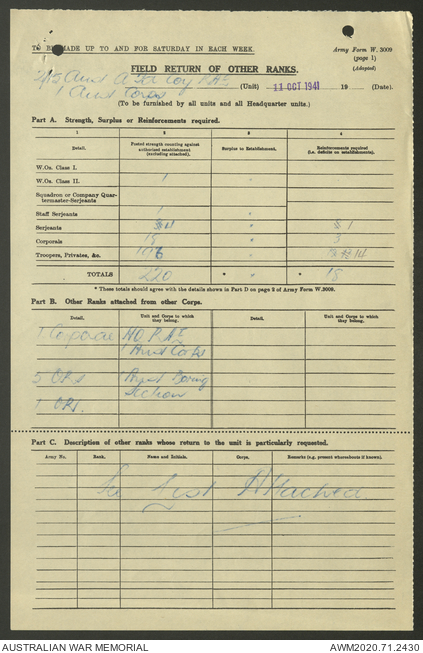 TO BE MADE UP TO AND FOR SATURDAY IN EACH WEEK.
Army Form W. 3009
(page 1)
(Adapted)
FIELD RETURN OF OTHER RANKS.
2/15 Aust A Fd Coy RAE (Unit) 11 OCT 1941 19 (Date).
1 Aust Corps
(To be furnished by all units and all Headquarter units.)
Part A. Strength, Surplus or Reinforcements required.
1 2 3 4
Detail. Posted strength counting against authorised establishment (excluding attached). Surplus to Establishment. Reinforcements required (i.e. deficits on establishments).
W.Os. Class I.
W.Os. Class II. 1
Squadron or Company Quartermaster-Serjeants
Staff Serjeants 1
Serjeants 1
Corporals 19 3
Troopers, Privates, &c. 14
TOTALS 220 * * 18
* These totals should agree with the details shown in Part D on page 2 of Army Form W.3009.
Part B. Other Ranks attached from other Corps.
Detail. Unit and Corps to which they belong. Detail. Unit and Corps to which they belong.
1 Corporal HQ RAE
1 Aust Corps
5 ORs Boring
Section
1 OR.
Part C. Description of other ranks whose return to the unit is particularly requested.
Army No. Rank. Name and Initials. Corps. Remarks (e.g. present whereabouts if known).
List Attached
AUSTRALIAN WAR MEMORIAL
AWM2020.71.2430